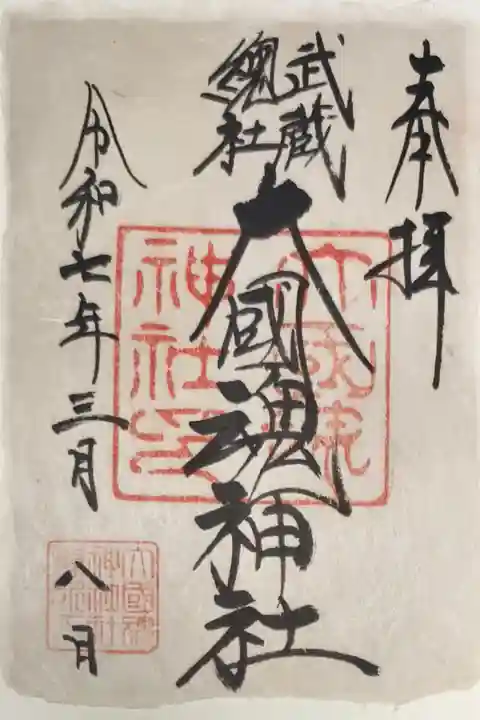 奉拝
武蔵
總社
大國魂神社
令和七年三月
八日
大國魂
神社印